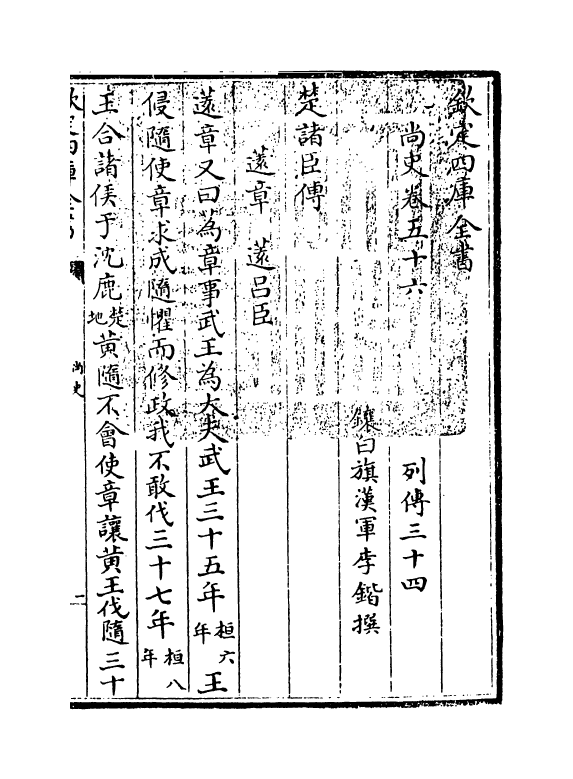 欽定四庫全書
尚史卷五十六 列傳三十四
鑲白旗漢軍李鍇撰
楚諸臣傳
薳章 薳呂臣
薳章又曰為章事武王為大夫武王三十五年桓六年王
侵隨使章求成隨懼而修政我不敢伐三十七年桓八年
王合諸侯于沈鹿楚地黄隨不會使章讓黄王伐隨三十
欽定四庫全書
尚史